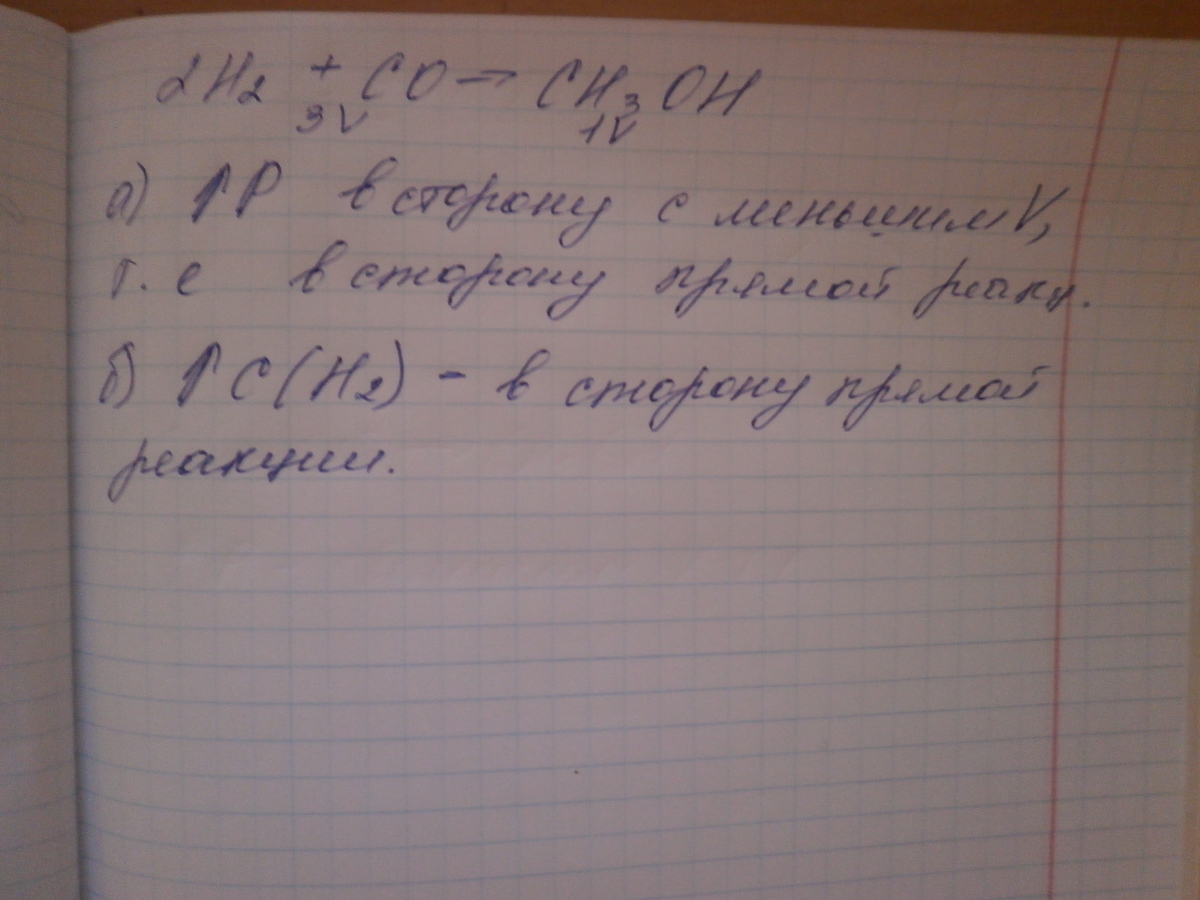 2H2 + CO = CH3OH
3V 1V
а) ↑P в сторону с меньшим V,
т.е в сторону прямой реакц.
б) ↑C(H2) - в сторону прямой
реакции.